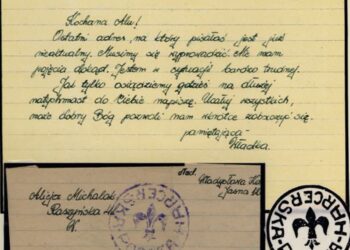 Kochana Alu!
Ostatni adres, na który pisałaś jest już
nieaktualny. Musimy się wyprowadzać. Nie mam
pojęcia dokąd. Jestem w sytuacji bardzo trudnej.
Jak tylko osiądziemy gdzieś na dłużej
natychmiast do Ciebie napiszę. Ucałuj wszystkich,
może dobry Bóg pozwoli nam wkrótce zobaczyć się.
pamiętająca
Władka
Nad.
Władysława
Jasna
Alicja
Raszyńska
HARCERSKA
HARCERSKA